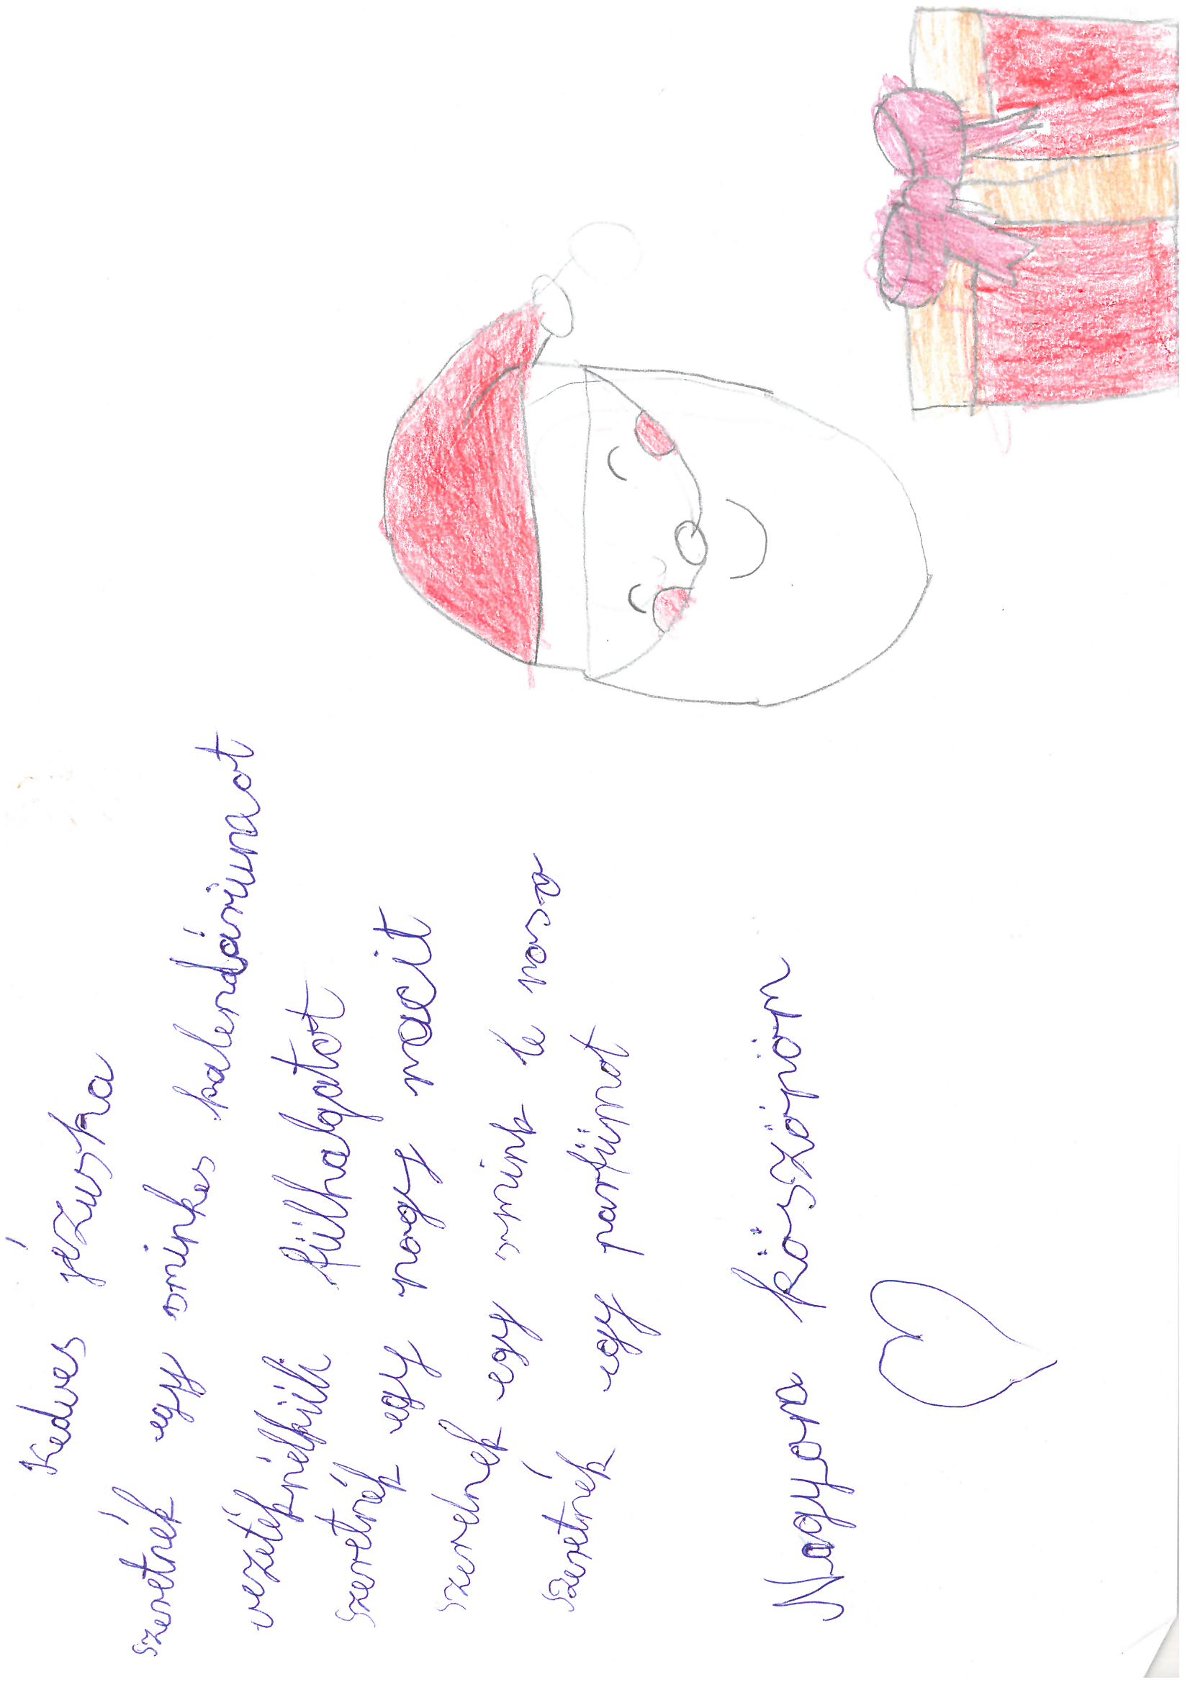 Kedves jézuska
szeretnék egy sminkes kalendáriumot
vezetéknélküli fülhalgatot
szeretnék egy nagy macit
szeretnék egy smink le mosó
szeretnék egy parfümöt
Nagyon köszönöm